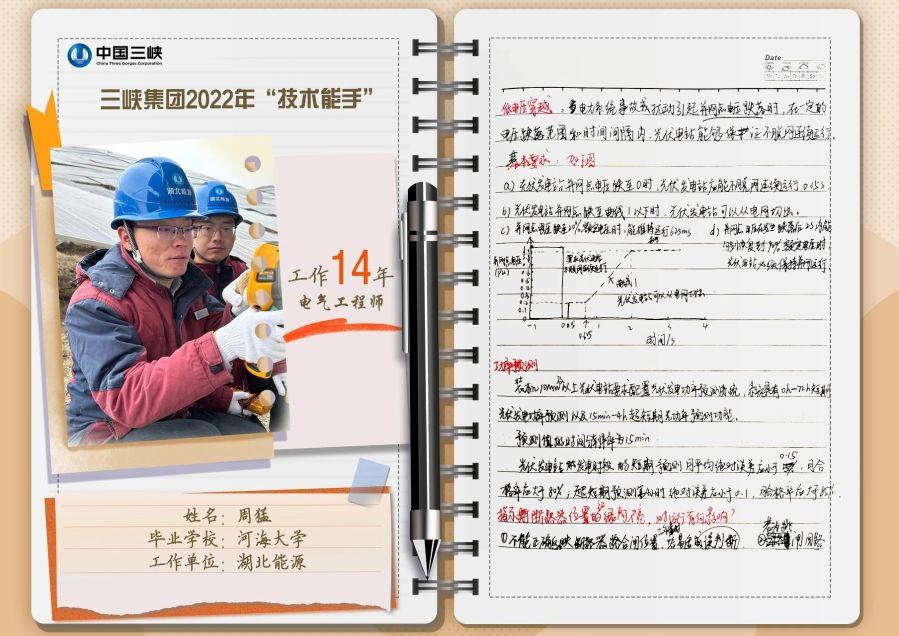 中国三峡
China Three Gorges Corporation
三峡集团2022年“技术能手”
湖北能源
工作14年
电气工程师
姓名：周猛
毕业学校：河海大学
工作单位：湖北能源
Date
低电压穿越：当电力系统事故或扰动引起并网点电压跌落时，在一定的
电压跌落范围和时间间隔内，光伏电站能够保证不脱网连续运行
基本要求：如图
a）光伏发电站并网点电压跌至0时，光伏发电站应能不脱网连续运行0.15s
b）光伏发电站并网点跌至曲线1以下时，光伏发电站可以从电网切出。
c）并网点电压跌至20%额定电压时，能维持运行625ms
d）并网点电压在发生跌落后2s内能
够恢复到90%额定电压时，
光伏发电站必须保持并网运行
曲线1
光伏发电站可以从电网切出
-1 0 0.15 0.625 1 2 3 4
时间/s
功率预测
装机10MW及以上光伏电站要求配置光伏发电功率预测系统，系统具有0h-72h短期
光伏发电功率预测以及15min-4h超短期光功率预测功能。
预测值的时间分辨率为15min
光伏发电站发电时段的短期预测月平均绝对误差应小于0.15，月合
格率应大于80%；超短期预测第4小时绝对误差应小于0.1，合格率应大于85%.
指示断路器位置的绿灯不亮，对运行有何影响？
①不能正确反映断路器跳合闸位置，易造成误判断